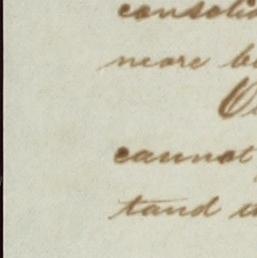 consolid
more b
O
cannot
tand u